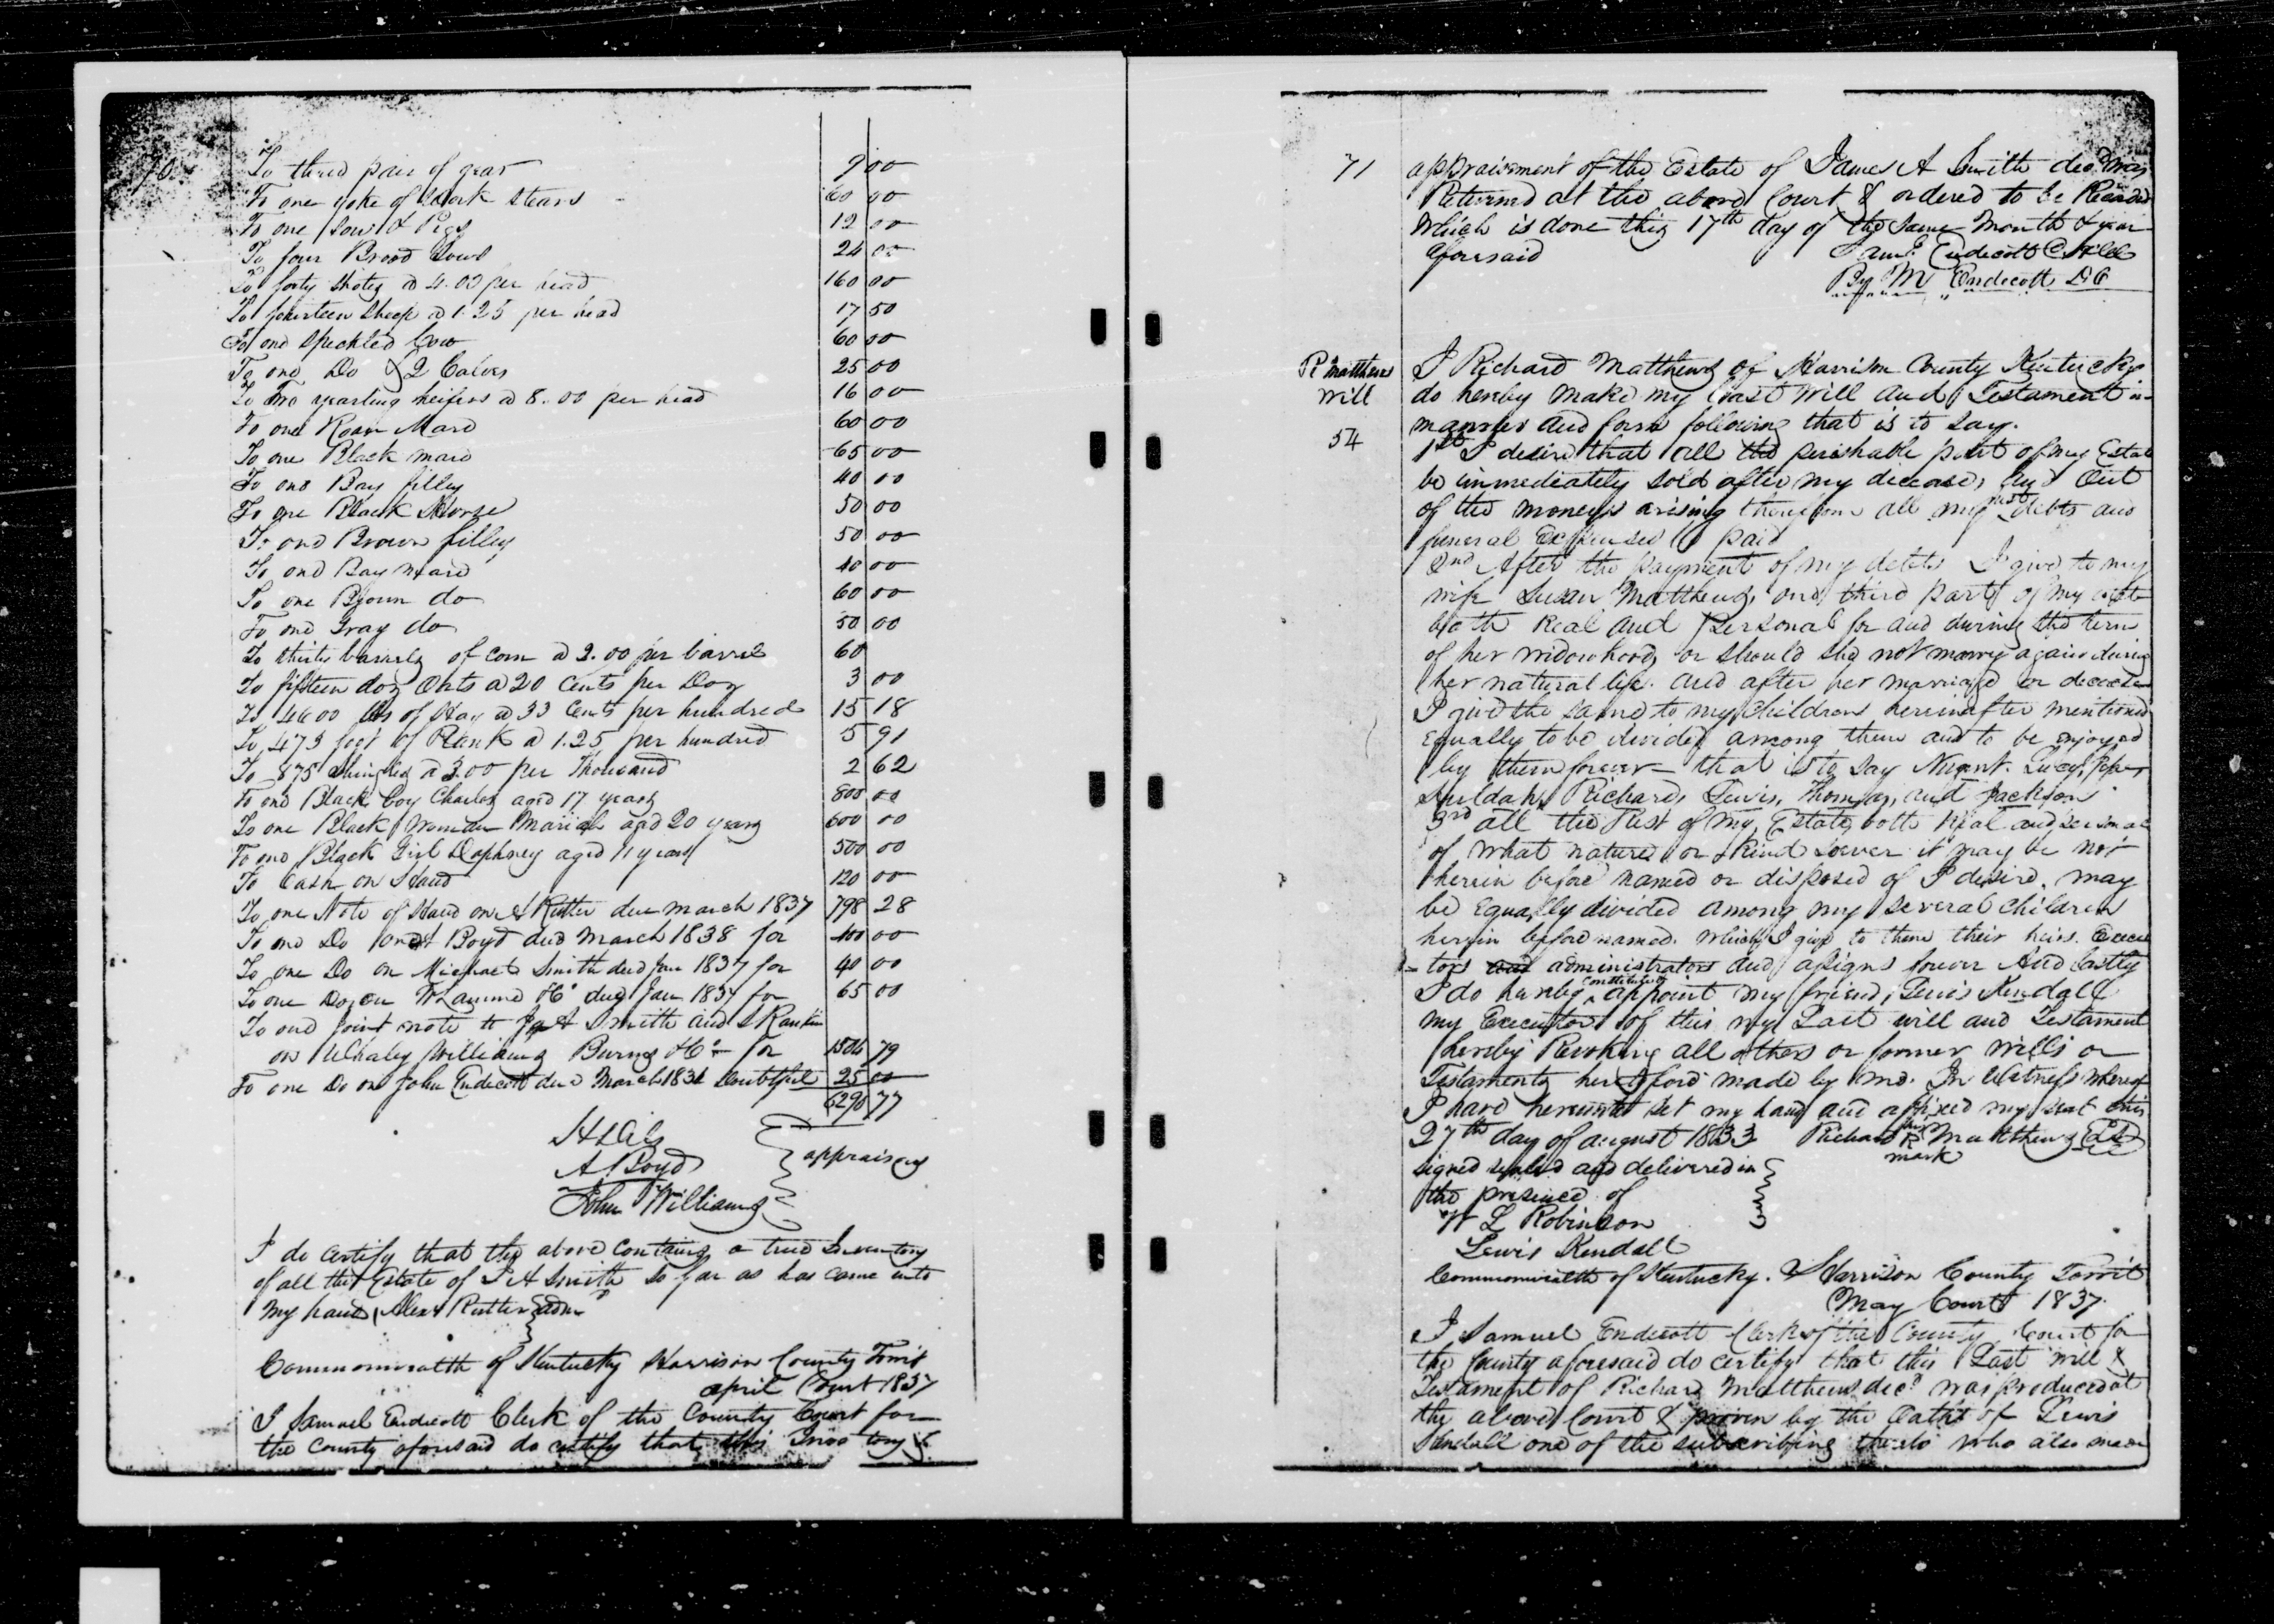 70
To three pair of gear 9 00
To one yoke of work stears 60 00
To one Sow & Pigs 12 00
To four Brood Sows 24 00
To forty Shotes a 4.00 per head 160 00
To fourteen Sheep a 1.25 per head 17 50
To one Speckled Cow 60 00
To one Do & 2 Calves 25 00
To Two yearling heifers a 8.00 per head 16 00
To one Roan Mare 60 00
To one Black mare 65 00
To one Bay filley 40 00
To one Black Horse 50 00
To one Brown filley 50 00
To one Bay Mare 40 00
To one Brown do 60 00
To one Gray do 50 00
To thirty barrels of corn a 2.00 per barrel 60
To fifteen doz Oats a 20 Cents per Doz 3 00
To 4600 lbs of Hay a 33 Cents per hundred 15 18
To 473 feet of Plank a 1.25 per hundred 5 91
To 875 Shingles a 3.00 per Thousand 2 62
To one Black boy Charles aged 17 years 800 00
To one Black Woman Mariah aged 20 years 600 00
To one Black Girl Daphney aged 11 years 500 00
To Cash on Hand 120 00
To one Note of Hand on A Rutter due march 1837 798 28
To one Do on A Boyd due March 1838 for 400 00
To one Do on Michael Smith due Jan 1837 for 40 00
To one Do on T Lamme & Co due Jan 1837 for 65 00
To one joint note to Jas A Smith and S Rankin
on Whaley Williams Burns & Co for 1506 79
To one Do on John Endecott due March 1831 Doubtful 25 00
6290 77
A Boyd appraisers
John Williams
I do certify that the above contains a true Inventory
of all the Estate of J A Smith so far as has came into
my hands Alexr Rutter adm
Commonwealth of Kentucky Harrison County Towit
april Court 1837
I Samuel Endecott Clerk of the County Court for
the County aforesaid do certify that this Inventory &
71
appraisment of the Estate of James A Smith decd was
Returned at the above Court & ordered to be Recorded
Which is done this 17th day of the same month & year
aforesaid Saml Endecott C
By M Endecott DC
R Matthews
Will
54
I Richard Matthews of Harrison County Kentucky
do hereby make my Last Will and Testament in
manner and form following that is to say.
1st I desire that all the perishable part of my Estate
be immediately sold after my decease, and Out
of the moneys arising therefrom all my just debts and
funeral Expenses paid
2nd After the payment of my debts I give to my
wife Susan Matthews one third part of my estate
both Real and Personal for and during the term
of her widowhood, or should she not marry again during
her natural life. and after her marriage or decease
I give the same to my children hereinafter mentioned
Equally to be divided among them and to be enjoyed
by them forever that is to say Nugent. Lucy,
Huldah, Richard, Lewis, Thomas, and Jackson
3rd all the Rest of my Estate, both Real and personal
of what nature or Kind soever it may be not
herein before named or disposed of I desire. may
be Equally divided among my several children
herein before named. which I give to them their heirs. Execu
tors and administrators and assigns forever And lastly
I do hereby constitute & appoint my friend, Lewis Kendall
my Executor of this my Last will and Testament
hereby Revoking all others or former wills or
Testaments heretofore made by me. In Witness whereof
I have hereunto set my hand and affixed my seal this
27th day of august 1833 Richard his R mark Matthews LS
signed sealed and delivered in
the presence of
W L Robinson
Lewis Kendall
Commonwealth of Kentucky. Harrison County Towit
May Court 1837.
I Samuel Endecott Clerk of the County Court for
the County aforesaid do certify that this Last will &
Testament of Richard Matthews decd was produced at
the above Court & proven by the Oaths of Lewis
Kendall one of the subscribing thereto who also made